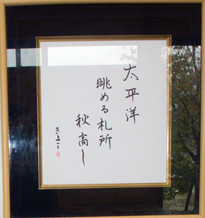 太平洋
眺める札所
秋高し